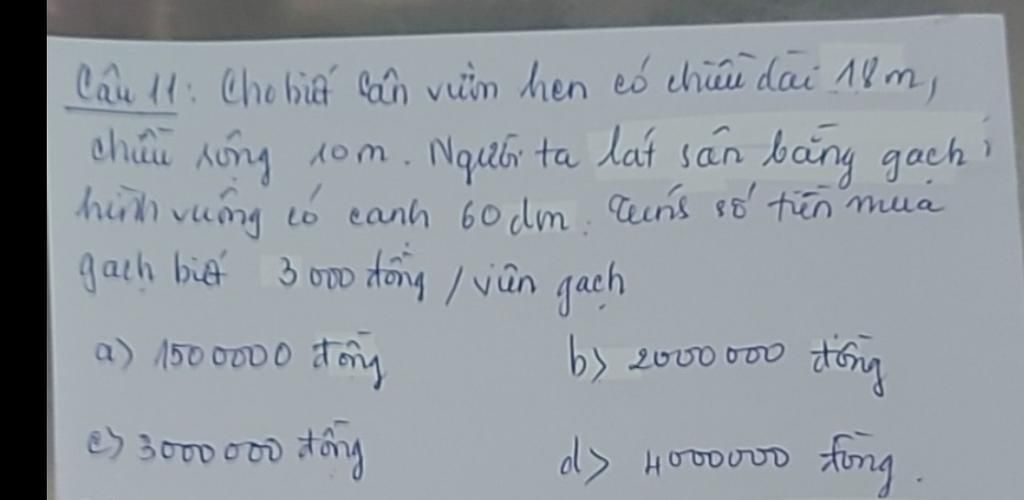 Câu 11: Cho biết sân vườn hen có chiều dài 18m,
chiều rộng 10m. Người ta lát sân bằng gạch
hình vuông có canh 60dm. số tiền mua
gạch biết 3000 đồng / viên gạch
a) 1500000 đồng b) 2000000 đồng
c) 3000000 đồng d) 4000000 đồng.